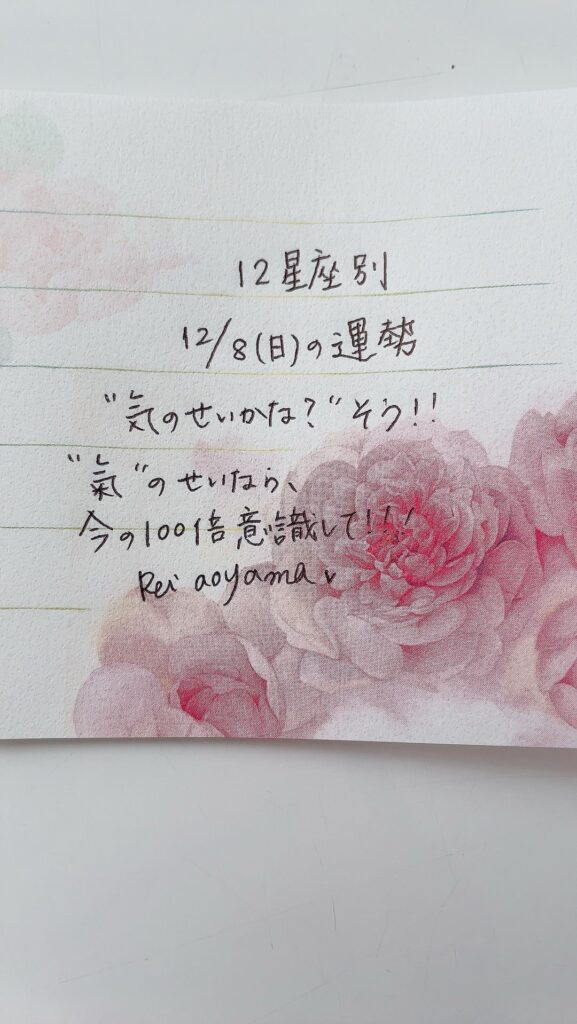 12星座別
12/8(日)の運勢
"気のせいかな?"そう!!
"氣"のせいなら、
今の100倍意識して!!!
Rei aoyama♥